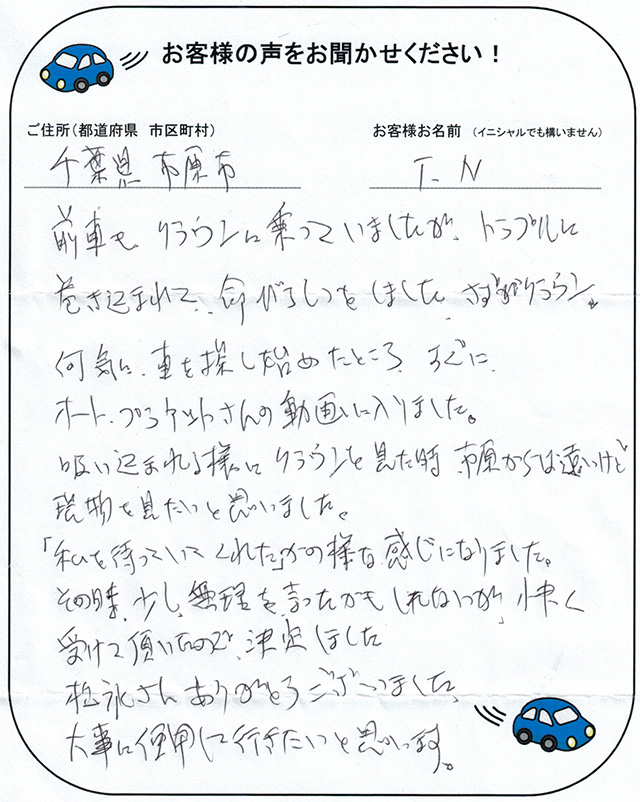 お客様の声をお聞かせください！
ご住所（都道府県　市区町村）
お客様お名前　（イニシャルでも構いません）
千葉県 市原市
T. N
前車も、クラウンに乗っていましたが、トラブルに
巻き込まれて、命びろいをしました。さすがクラウン。
何気に、車を探し始めたところ、すぐに、
オート、プラケットさんの動画に入りました。
吸い込まれる様にクラウンを見た時 市原からは遠いけど
現物を見たいと思いました。
「私を待っていてくれた」かの様な感じになりました。
その時、少し、無理を言ったかもしれないが、快く
受けて頂いたので、決定しました
松永さんありがとうございました。
大事に使用して行きたいと思います。